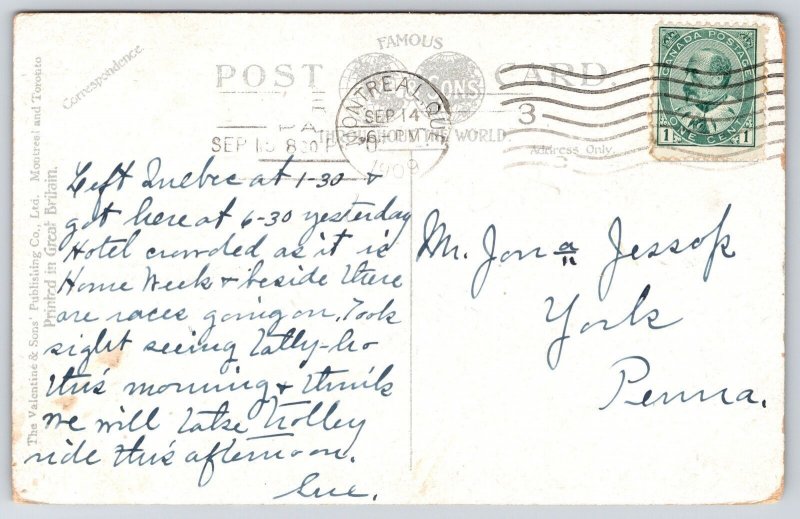 FAMOUS
POST CARD
SONS
THROUGHOUT THE WORLD
Correspondence.
Address Only.
MONTREAL, QUE.
SEP 14
PM
1909
SEP 15 8 30 P
3
CANADA POSTAGE
1 ONE CENT 1
The Valentine & Sons' Publishing Co., Ltd., Montreal and Toronto
Printed in Great Britain.
Left Quebec at 1-30 &
got here at 6-30 yesterday
Hotel crowded as it is
Home Week & beside there
are races going on. Took
sight seeing tally-ho
this morning & think
we will take trolley
ride this afternoon.
Sue.
Mr. Jon a/n Jessop
York
Penna.